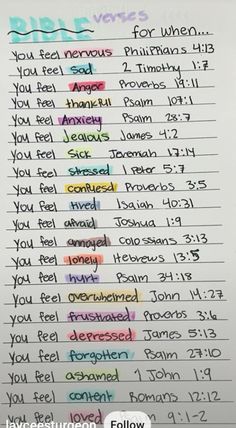 BIBLE verses
for when...
You feel nervous Philippians 4:13
You feel sad 2 Timothy 1:7
You feel Anger Proverbs 19:11
You feel thankful Psalm 107:1
You feel Anxiety Psalm 28:7
You feel jealous James 4:2
You feel Sick Jeremiah 17:14
You feel stressed 1 Peter 5:7
You feel confuesd Proverbs 3:5
You feel tired Isaiah 40:31
You feel afraid Joshua 1:9
You feel annoyed Colossians 3:13
You feel lonely Hebrews 13:5
You feel hurt Psalm 34:18
You feel overwhelmed John 14:27
You feel frustrated Proverbs 3:6
You feel depressed James 5:13
You feel forgotten Psalm 27:10
You feel ashamed 1 John 1:9
You feel content Romans 12:12
You feel loved 9:1-2
layceesturgeon Follow